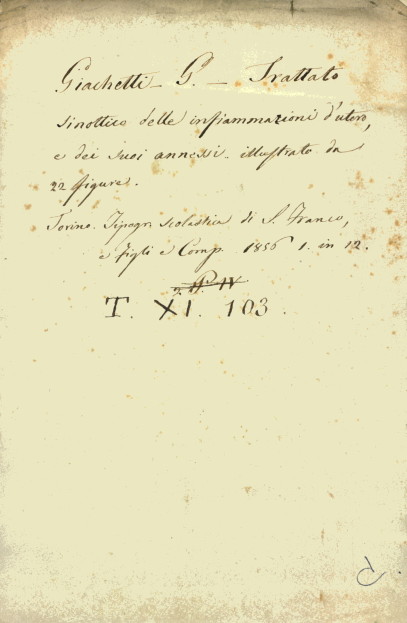 Giachetti - G. - Trattato
sinottico delle infiammazioni d'utero,
e dei suoi annessi. illustrato da
22 figure.
Torino. Tipogr. scolastica di S. Franco,
e figli e Comp. 1856 1. in 12.
T. XI. 103.